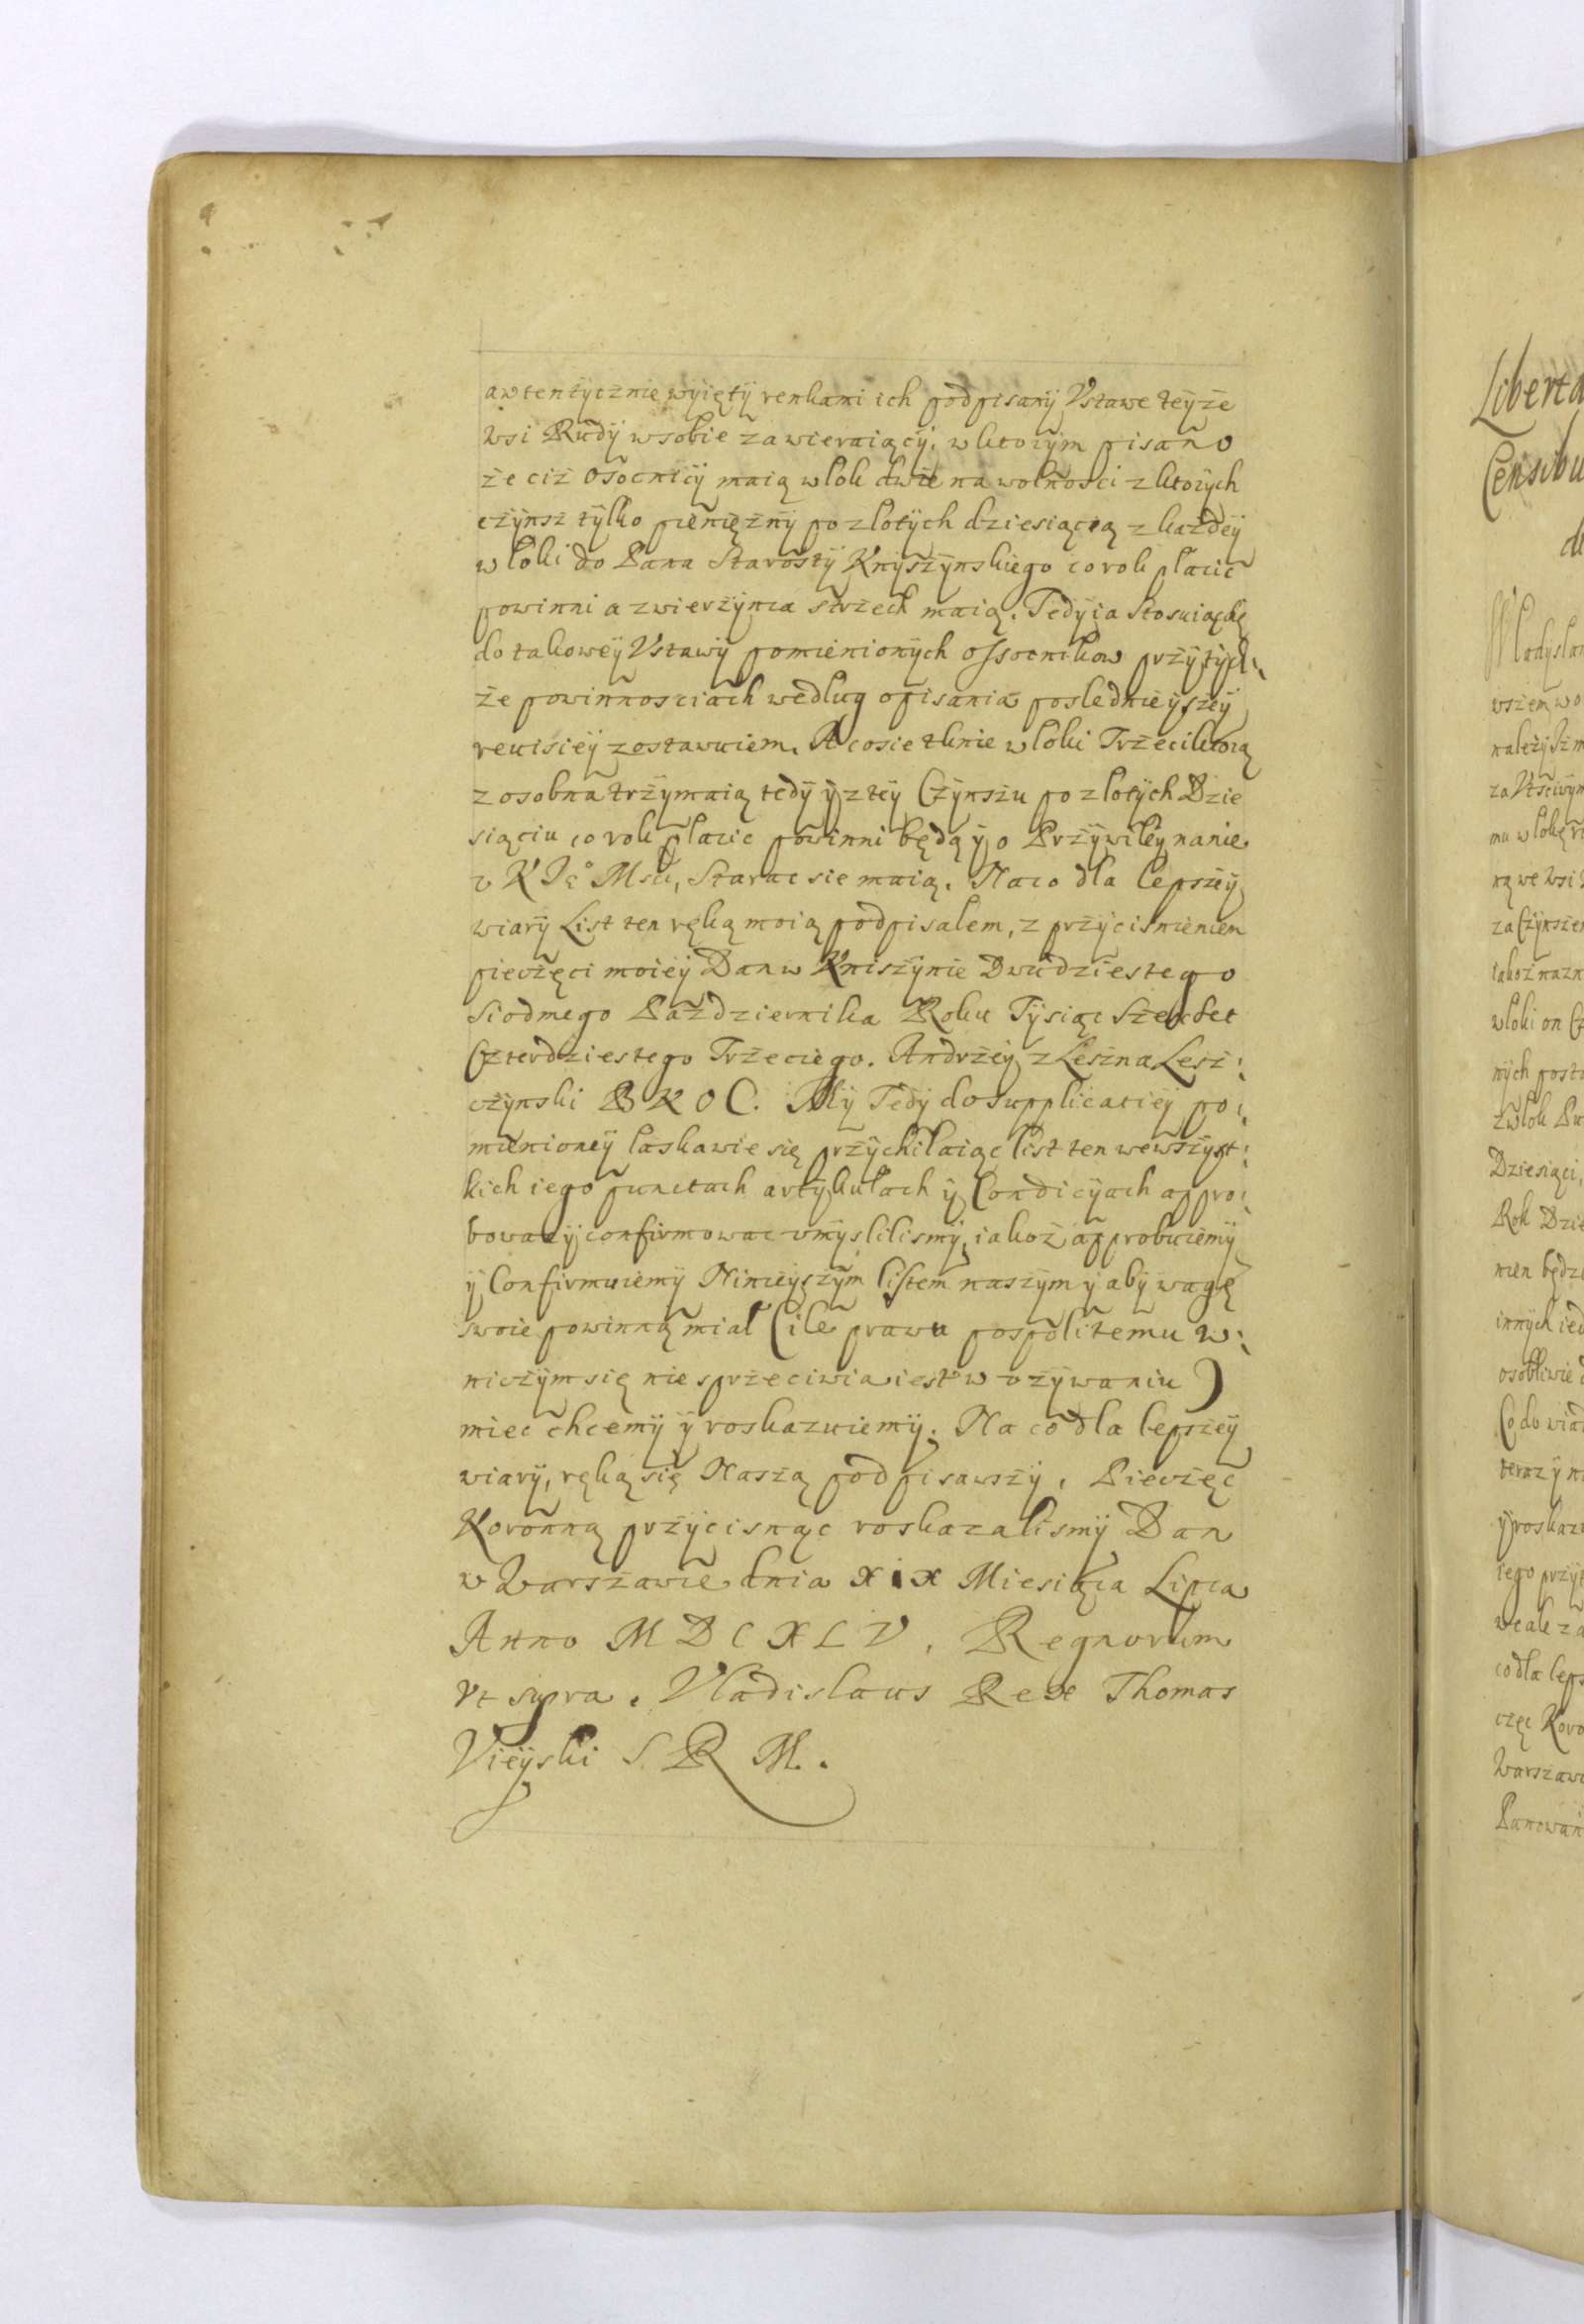 awtentycznie wyięty renkami ich podpisany Vstawe teyże
Wsi Rudy w sobie zawieraiący, w ktorym pisano
że ciż osocnicy maią wlok dwie na wolnosci z ktorych
czynsz tylko pieniężny po zlotych dziesiącią z każdey
wloki do Pana Starosty Knyszynskiego co rok placic
powinni a zwierzynca strzech maią. Tedy ia Stosuiącsię
do takowey Vstawy pomienionych ossocnikow przy tych:
że powinnosciach wedlug opisania poslednieyszey
reuisiey zostawuiem. A co sie tknie wloki Trzeci ktorą
z osobna trzymaią tedy y z tey Czynszu po zlotych Dzie
siąciu co rok placic powinni będą y o Przywiley na nie
v K Ie° Msci, Starac sie maią. Na co dla lepszey
wiary List ten ręką moią podpisalem, z przycisnieniem
pieczęci moiey Dan w Kniszynie Dwudziestego
Siodmego Pazdziernika Roku Tysiąc Szescset
Czterdziestego Trzeciego. Andrzey z Leszna Lesz:
czynski B K O C. My Tedy do supplicatiey po:
mienioney laskawie się przychilaiąc list ten we wszyst:
kich iego punctach artykulach y Condicyach appro:
bowac y confirmowac vmyslilismy, iakoż approbuiemy
y Confirmuiemy Ninieyszym listem naszym y aby wagę
swoie powinną mial (ile prawu pospolitemu w:
niczym się nie sprzeciwia iest w vżywaniu)
miec chcemy y roskazuiemy. Na co dla lepszey
wiary, ręką się Naszą podpisawszy, Pieczęc
Koronną przycisnąc roskazalismy Dan
w Warszawie dnia XIX Miesiąca Lipca
Anno M D C X L V, Regnorum
vt supra. Vladislaus Rex Thomas
Vieyski S. R M.
Liberta
Censibu
de
Wladyslaw
wszem wo
należy Iż m
za Vtsciwym
mu wlokę
ną we Wsi
za Czynszem
iakoż nazn
wloki on Cz
nych posta
zwlok
Dziesiąci,
Rok Dzie
nien będzi
innych ied
osobliwie
Co do wiad
teraz y n
y roskazu
iego przy
w cale za
co dla leps
częc Koro
Warszawi
Panowan